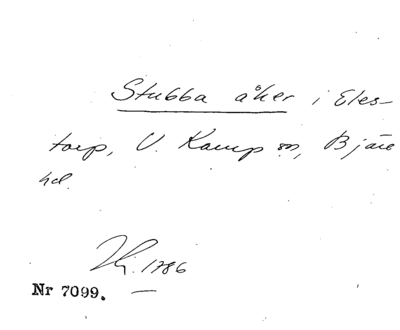 Stubba åker i Eles-
torp, V. Karup sn, Bjäre
hd.
1786
Nr 7099.